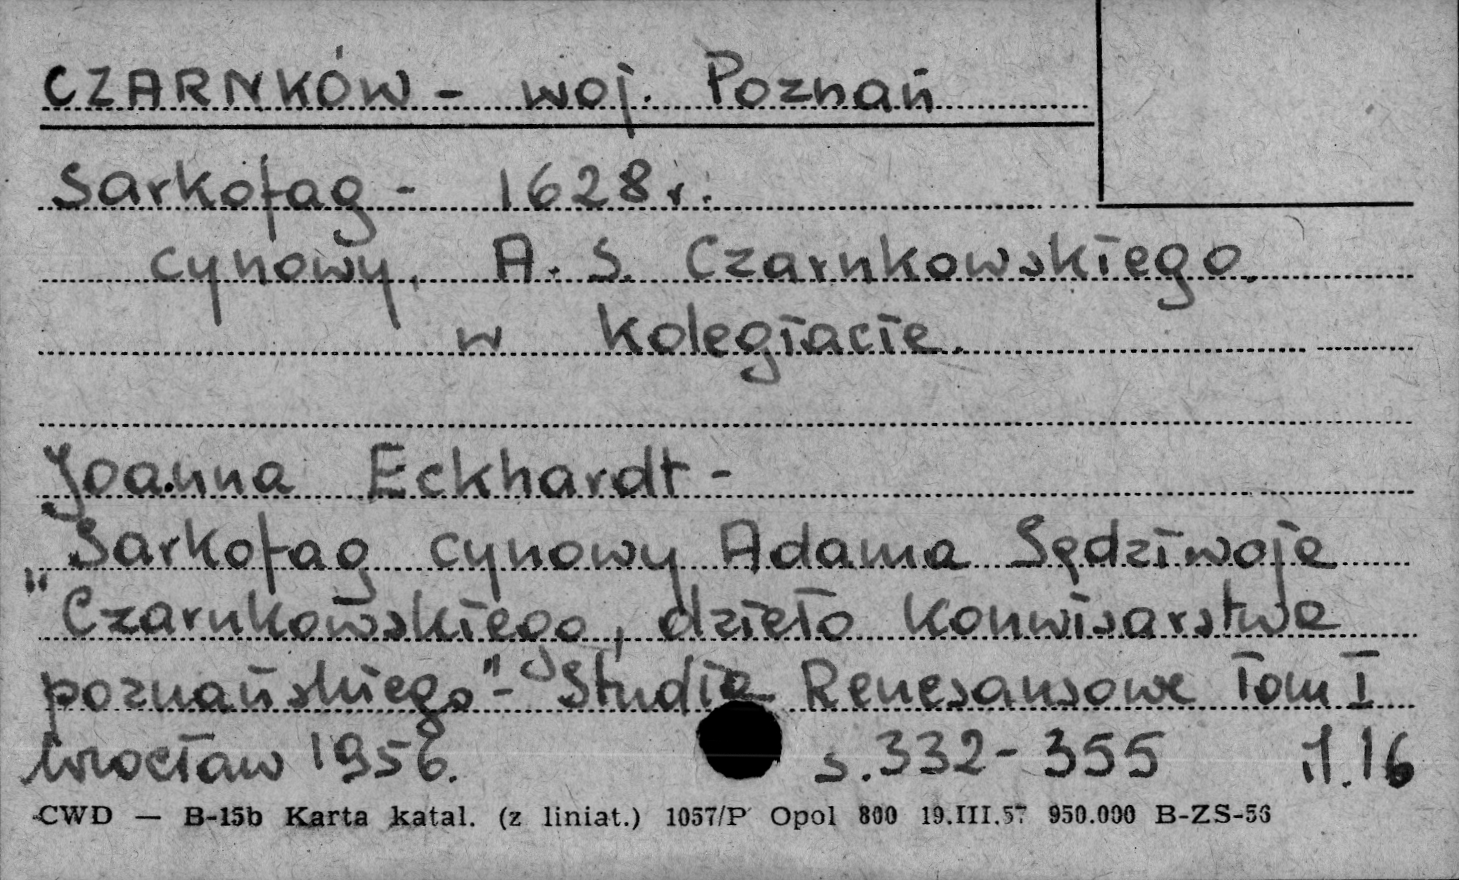 CZARNKÓW - woj. Poznań
Sarkofag - 1628 r.
cynowy, A. S. Czarnkowskiego.
w kolegiacie.
Joanna Eckhardt -
Sarkofag cynowy Adama Sędziwoja
"Czarnkowskiego, dzieło konwisarstwa
poznańskiego" - Studia Renesansowe Tom I
Wrocław 1956. s. 332 - 355 il. 16
CWD — B-15b Karta katal. (z liniat.) 1057/P Opol 800 19.III.57 950.000 B-ZS-56